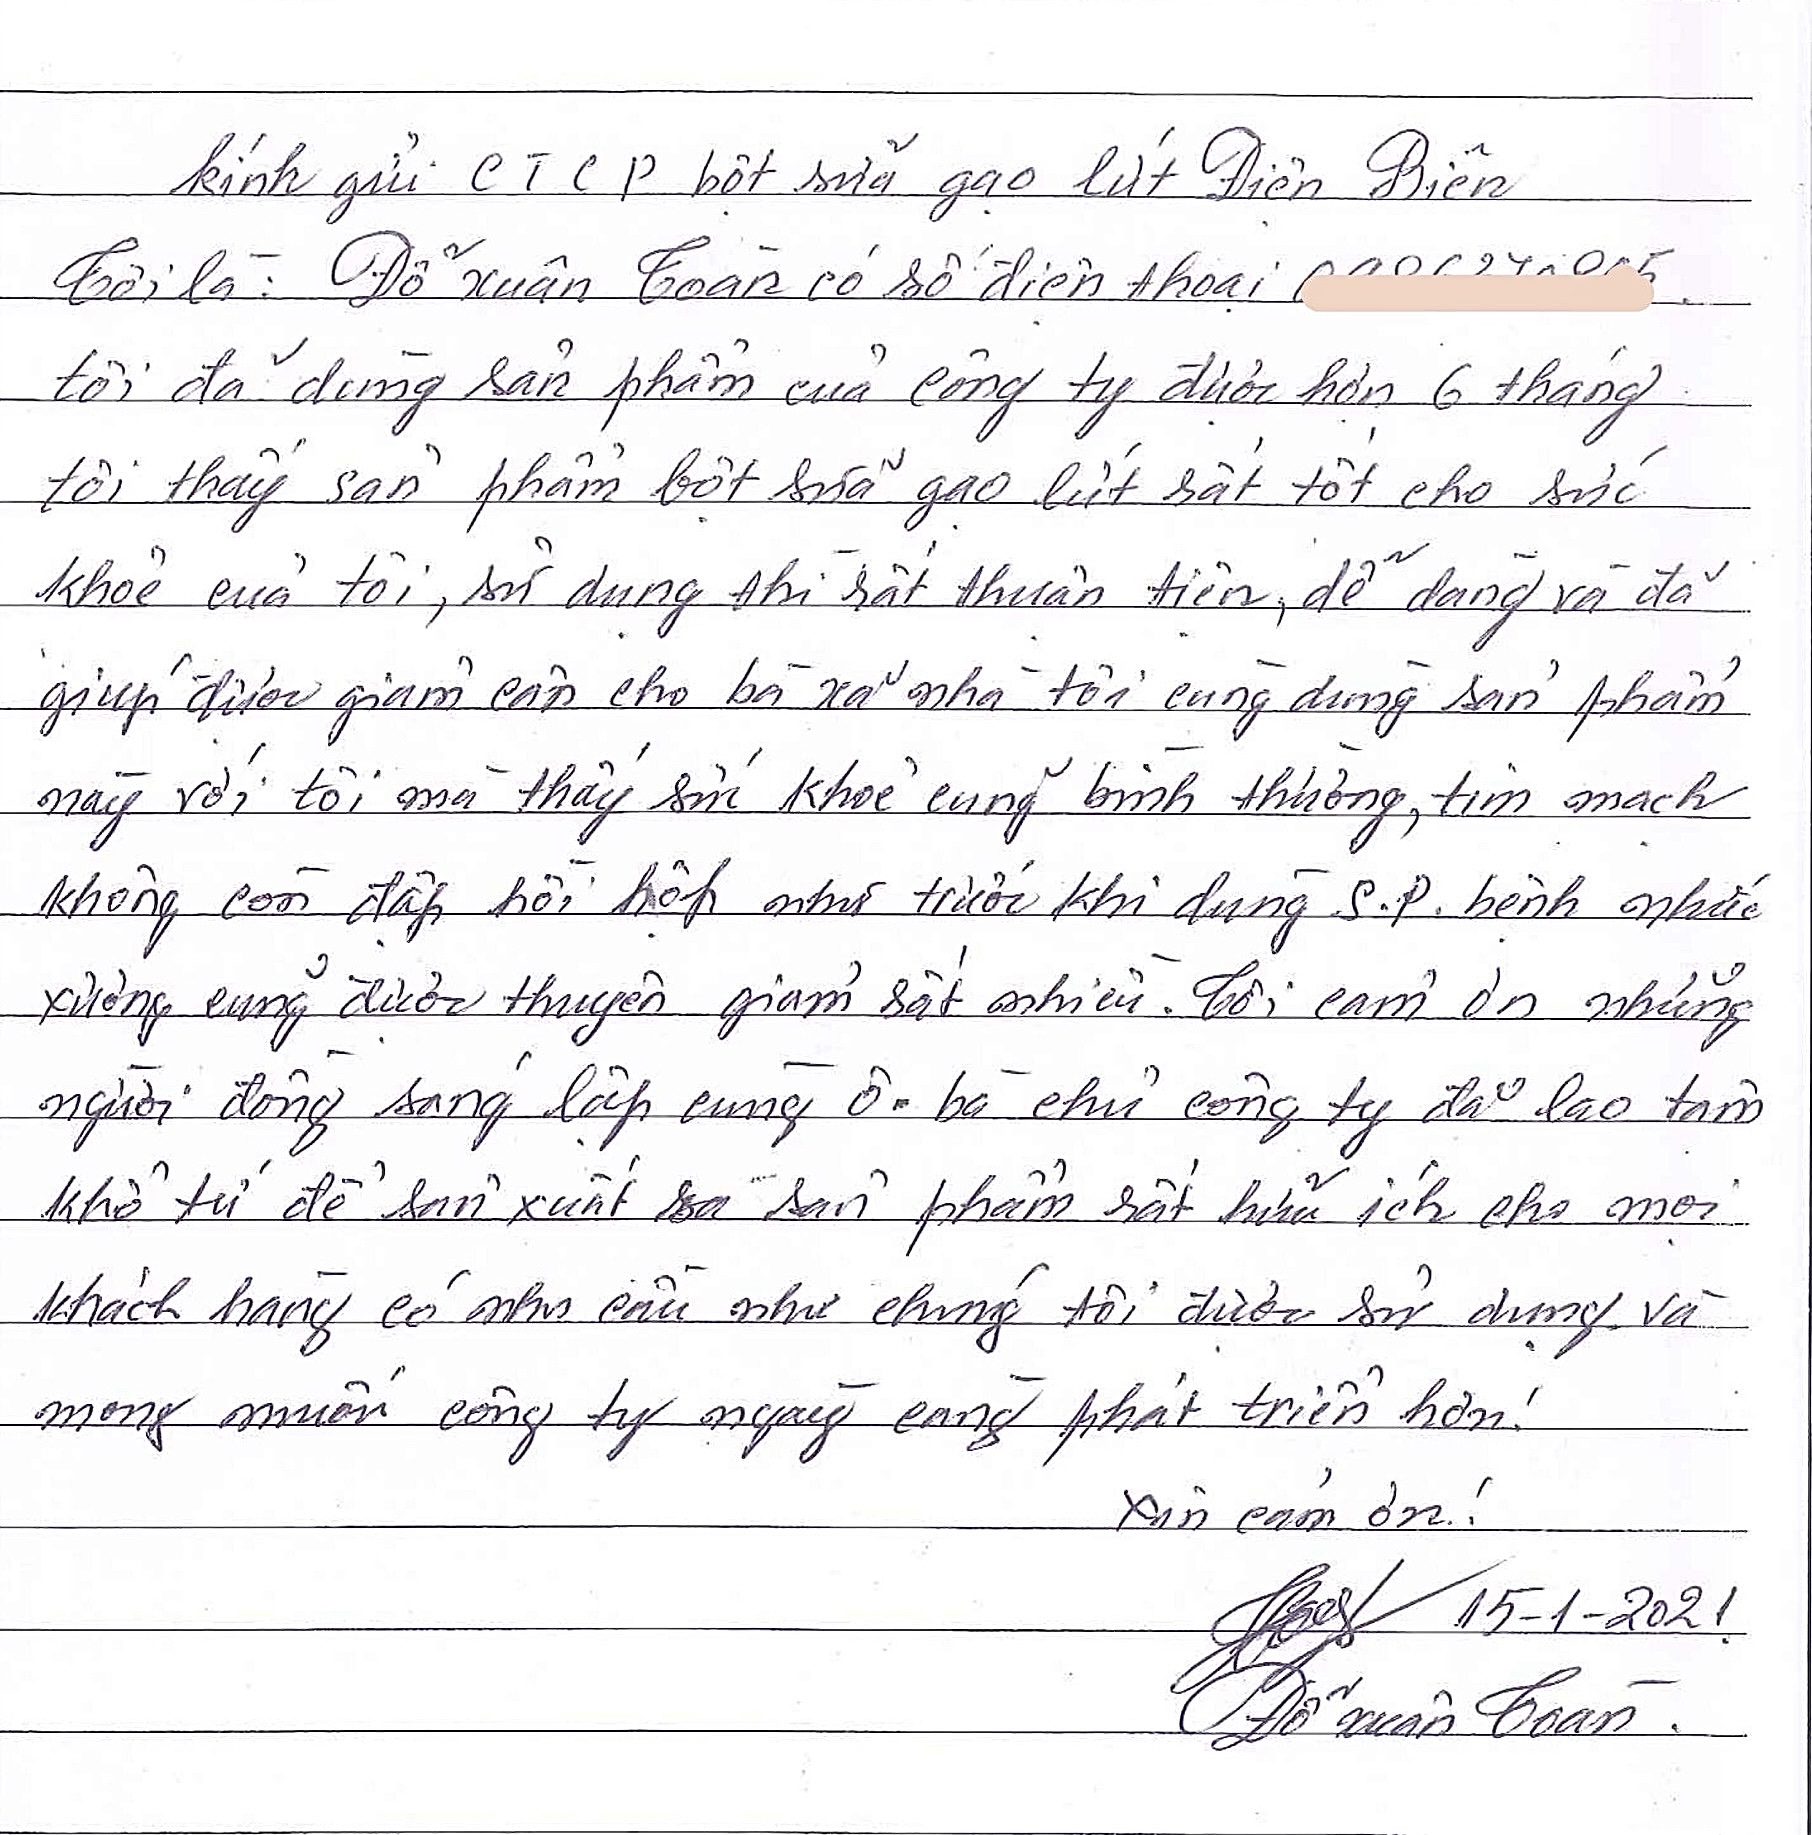 kính gửi CTCP bột sữa gạo lứt Điện Biên
Tôi là: Đỗ Xuân Toàn có số điện thoại
tôi đã dùng sản phẩm của công ty được hơn 6 tháng
tôi thấy sản phẩm bột sữa gạo lứt rất tốt cho sức
khoẻ của tôi, sử dụng thì rất thuận tiện, dễ dàng và đã
giúp được giảm cân cho bà xã nhà tôi cùng dùng sản phẩm
này với tôi mà thấy sức khoẻ cũng bình thường, tim mạch
không còn đập hồi hộp như trước khi dùng S.P. bệnh nhức
xương cũng được thuyên giảm rất nhiều. Tôi cảm ơn những
người đồng sáng lập cùng ô. bà chủ công ty đã lao tâm
khổ tứ để sản xuất ra sản phẩm rất hữu ích cho mọi
khách hàng có nhu cầu như chúng tôi được sử dụng. và
mong muốn công ty ngày càng phát triển hơn!
Xin cảm ơn!
15-1-2021
Đỗ Xuân Toàn.